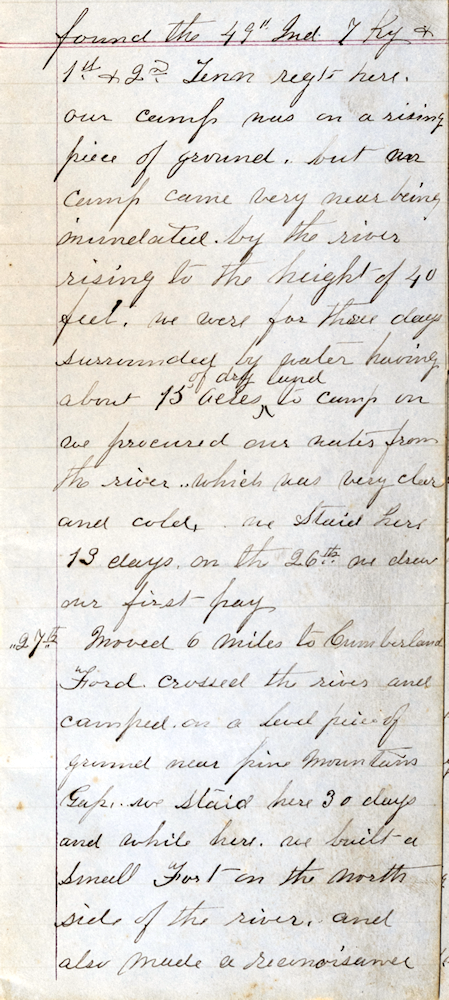 found the 49" Ind. 7 Ky &
1st & 2nd Tenn regts here.
our camp was on a rising
piece of ground. but our
camp came very near being
inundated. by the river
rising to the height of 40
feet. we were for three days
surrounded by water having
of dry land
about 15 acres ^ to camp on
we procured our water from
the river.. which was very clear
and cold. we staid here
13 days. on th 26th we drew
our first pay
"27th Moved 6 miles to Cumberland
"Ford. crossed the river and
camped. on a level piece of
ground near pine Mountains
Gap.. we staid here 30 days
and while here. we built a
small Fort on the north
side of the river. and
also made a reconoisance